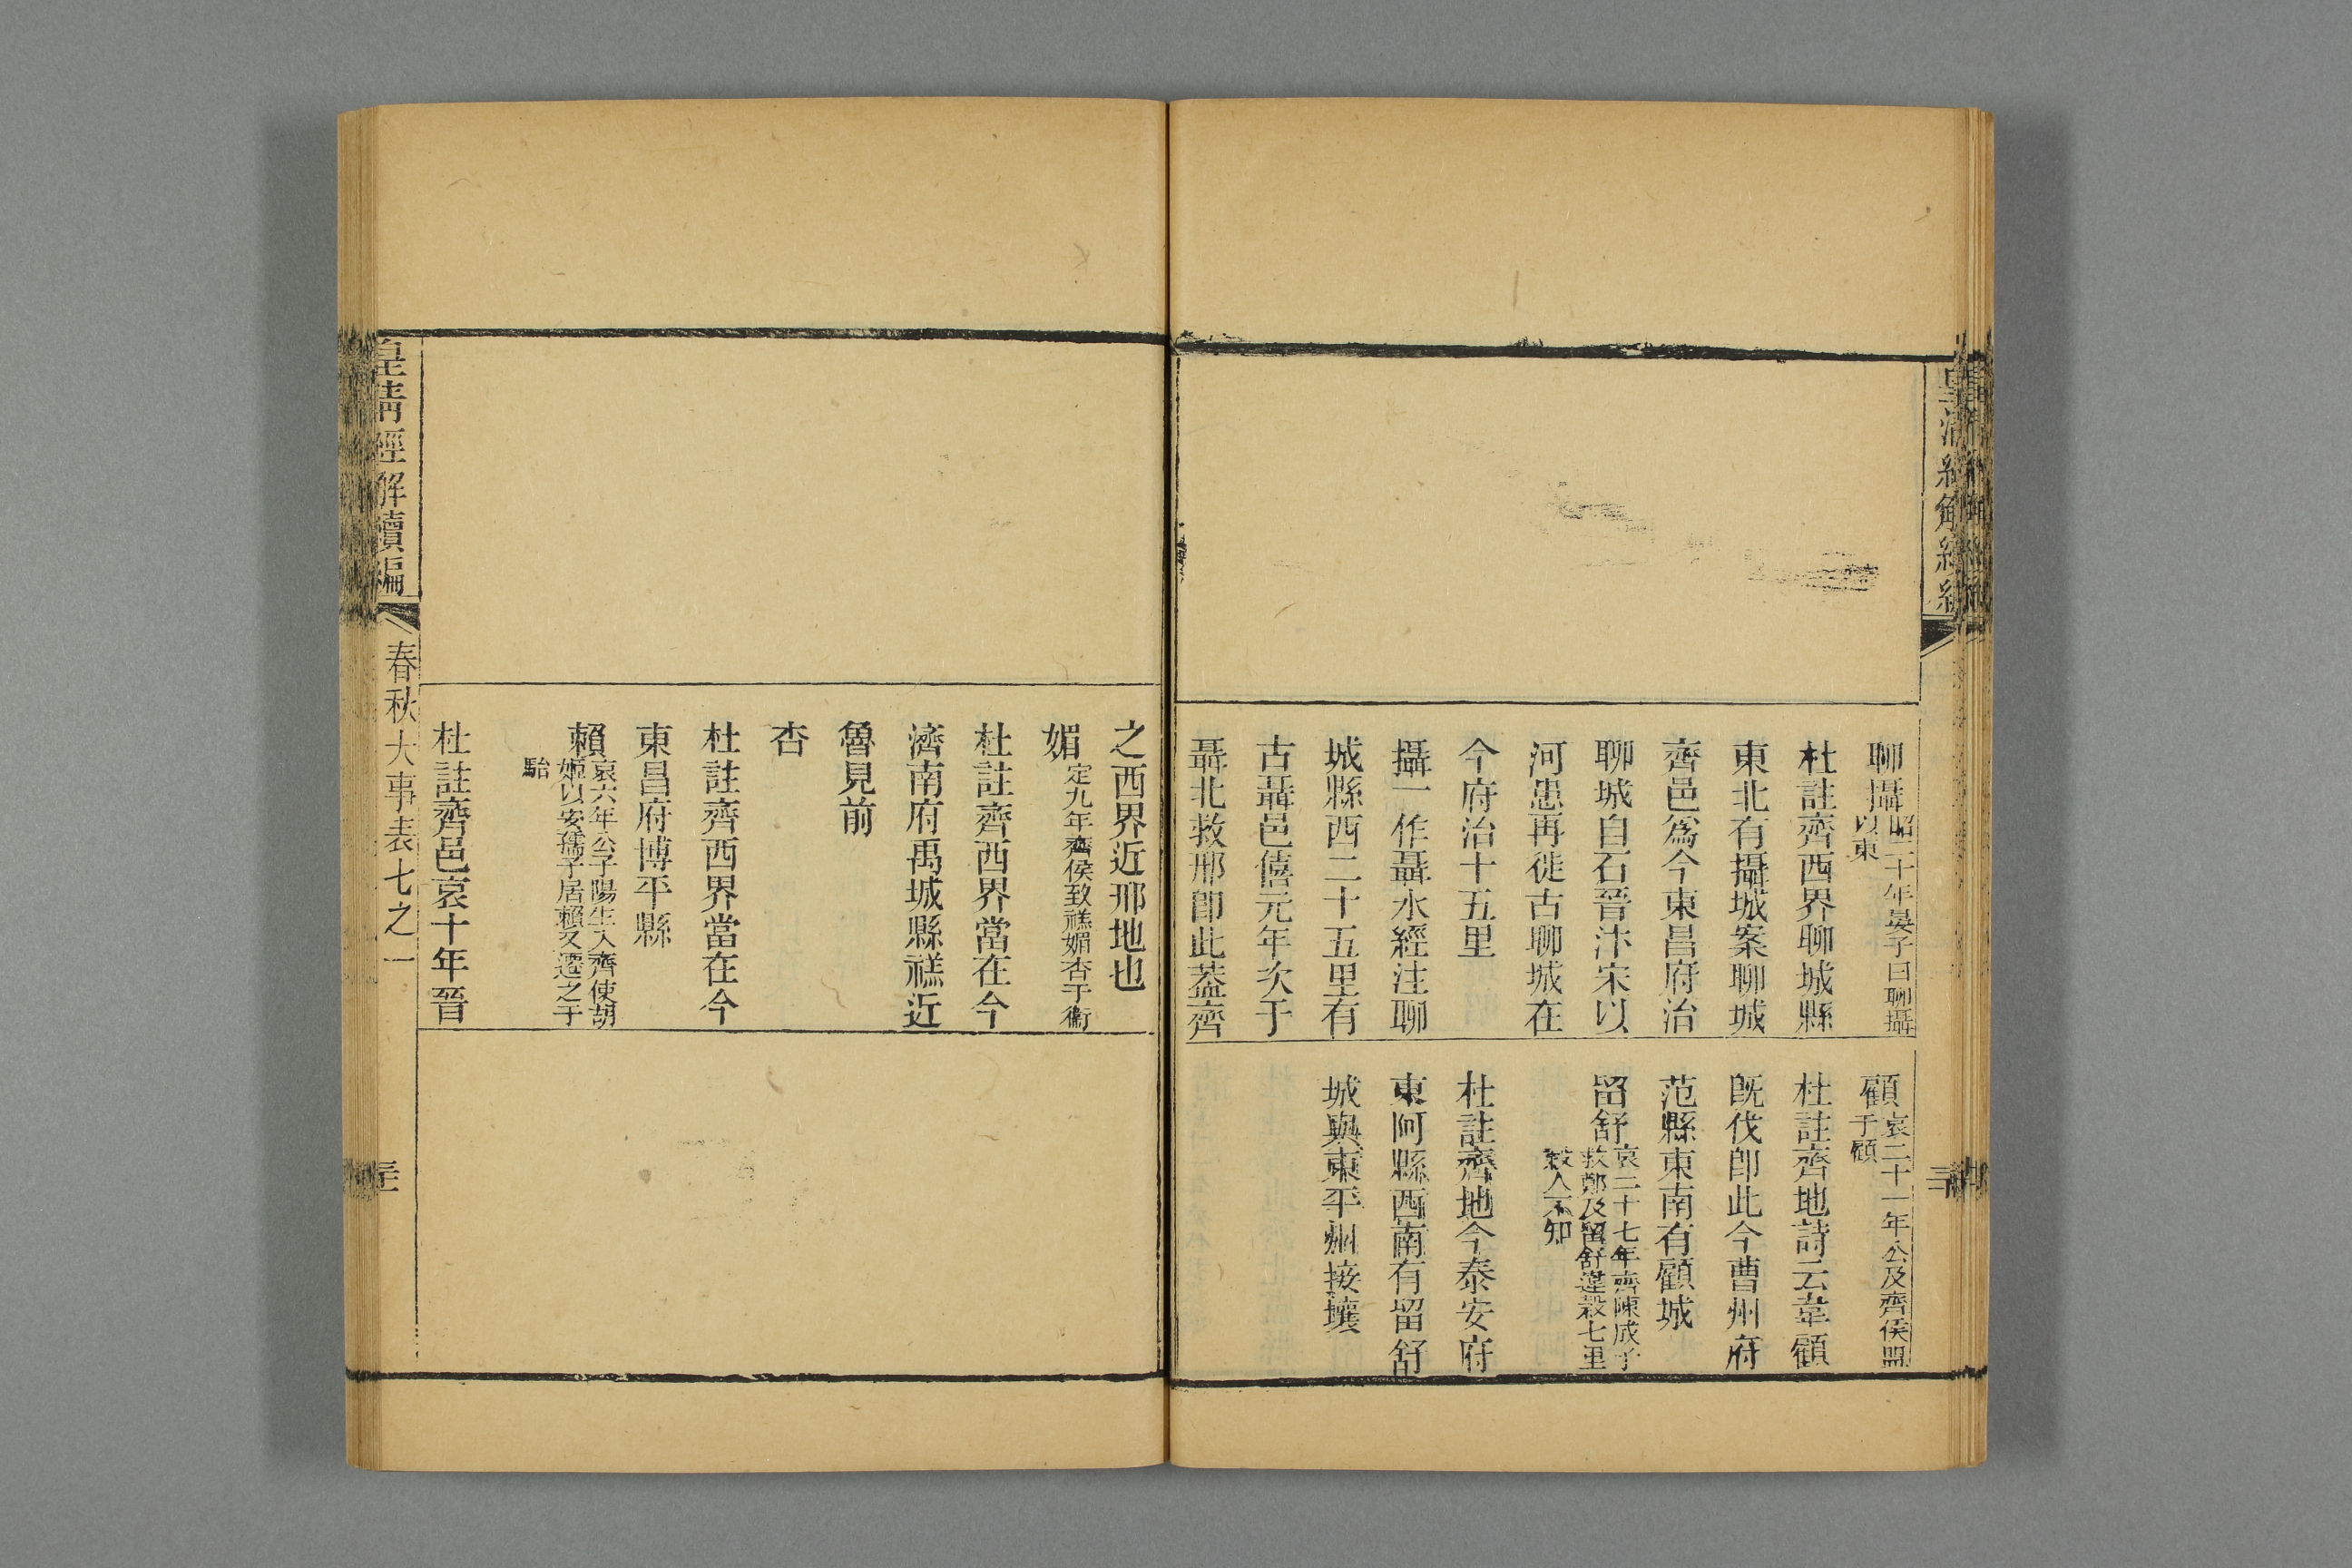 聊攝昭二十年晏子曰聊攝
以東
杜註齊西界聊城縣
東北有攝城案聊城
齊邑爲今東昌府治
聊城自石晉汴宋以
河患再徙古聊城在
今府治十五里
攝一作聶水經注聊
城縣西二十五里有
古聶邑僖元年次于
聶北救邢卽此葢齊
顧哀二十一年公及齊侯盟
于顧
杜註齊地詩云韋顧
旣伐卽此今曹州府
范縣東南有顧城
留舒哀二十七年齊陳成子
救鄭及留舒違穀七里
穀人不知
杜註齊地今泰安府
東阿縣西南有留舒
城與東平州接壤
之西界近邢地也
媚定九年齊侯致禚媚杏于衞
杜註齊西界當在今
濟南府禹城縣禚近
魯見前
杏
杜註齊西界當在今
東昌府博平縣
賴哀六年公子陽生入齊使胡
姬以安孺子居賴又遷之于
駘
杜註齊邑哀十年晉
皇淸經解續編
春秋大事表七之一